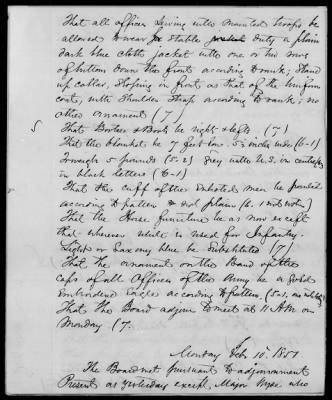 That all officers serving with mounted troops be
allowed to wear for stable duty a plain
dark blue cloth jacket with one or two rows
of buttons down the front according to rank; stand
up collar, sloping in front as that of the uniform
coat, with shoulder strap according to rank; no
other ornament (7)
5 That Bootees & Boots be rights & lefts. (7)
That the blanket be 7 feet long. 5½ inches wide (6-1)
to weigh 5 pounds (5.2) Grey with U.S. in center
in black letters (6-1)
That the cuff of the Enlisted men be pointed
according to pattern & not plain (6. 1 not voting)
That the Horse furniture be as now except
that wherever white is used for Infantry.
Light or Saxony blue be substituted (7)
That the ornament on the Band of the
caps of all Officers of the Army be a Gold
Embroidered Eagle according to pattern, (5-1, one not voting)
That the Board adjourn to meet at 11 A.M. on
Monday. (7.
Monday Feb. 10th 1851
The Board met pursuant to adjournment
Present as yesterday except Major who